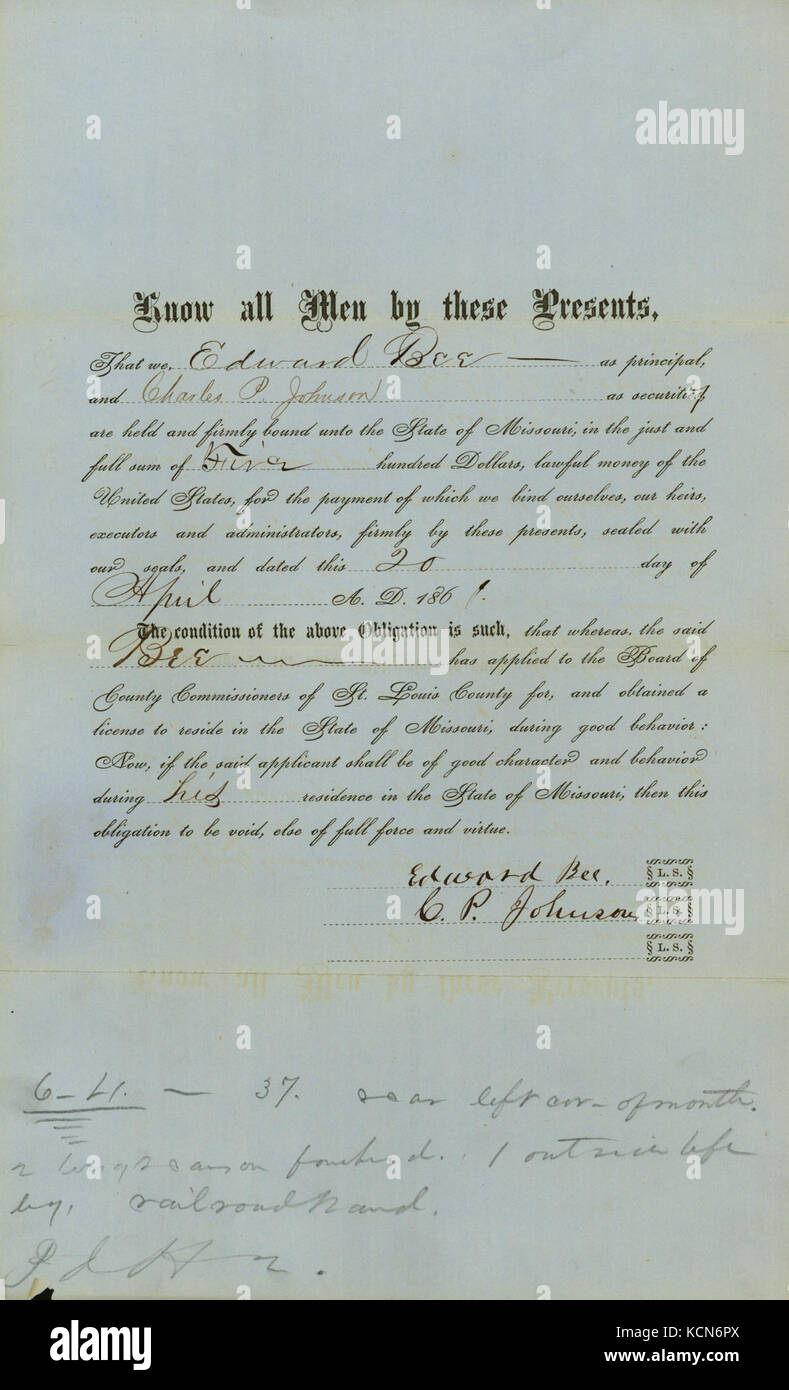 Know all Men by these Presents,
That we, Edward Bee as principal,
and Charles P. Johnson as security
are held and firmly bound unto the State of Missouri, in the just and
full sum of Five hundred Dollars, lawful money of the
United States, for the payment of which we bind ourselves, our heirs,
executors and administrators, firmly by these presents, sealed with
our seals, and dated this 20 day of
April A. D. 1861.
The condition of the above Obligation is such, that whereas, the said
Bee has applied to the Board of
County Commissioners of St. Louis County for, and obtained a
license to reside in the State of Missouri, during good behavior:
Now, if the said applicant shall be of good character and behavior
during his residence in the State of Missouri, then this
obligation to be void, else of full force and virtue.
Edward Bee. § L. S. §
C. P. Johnson § L. S. §
§ L. S. §
37. scar left cor of mouth.
2 forehead. 1 outside left
leg. railroad hand.
alamy
Image ID: KCN6PX
www.alamy.com